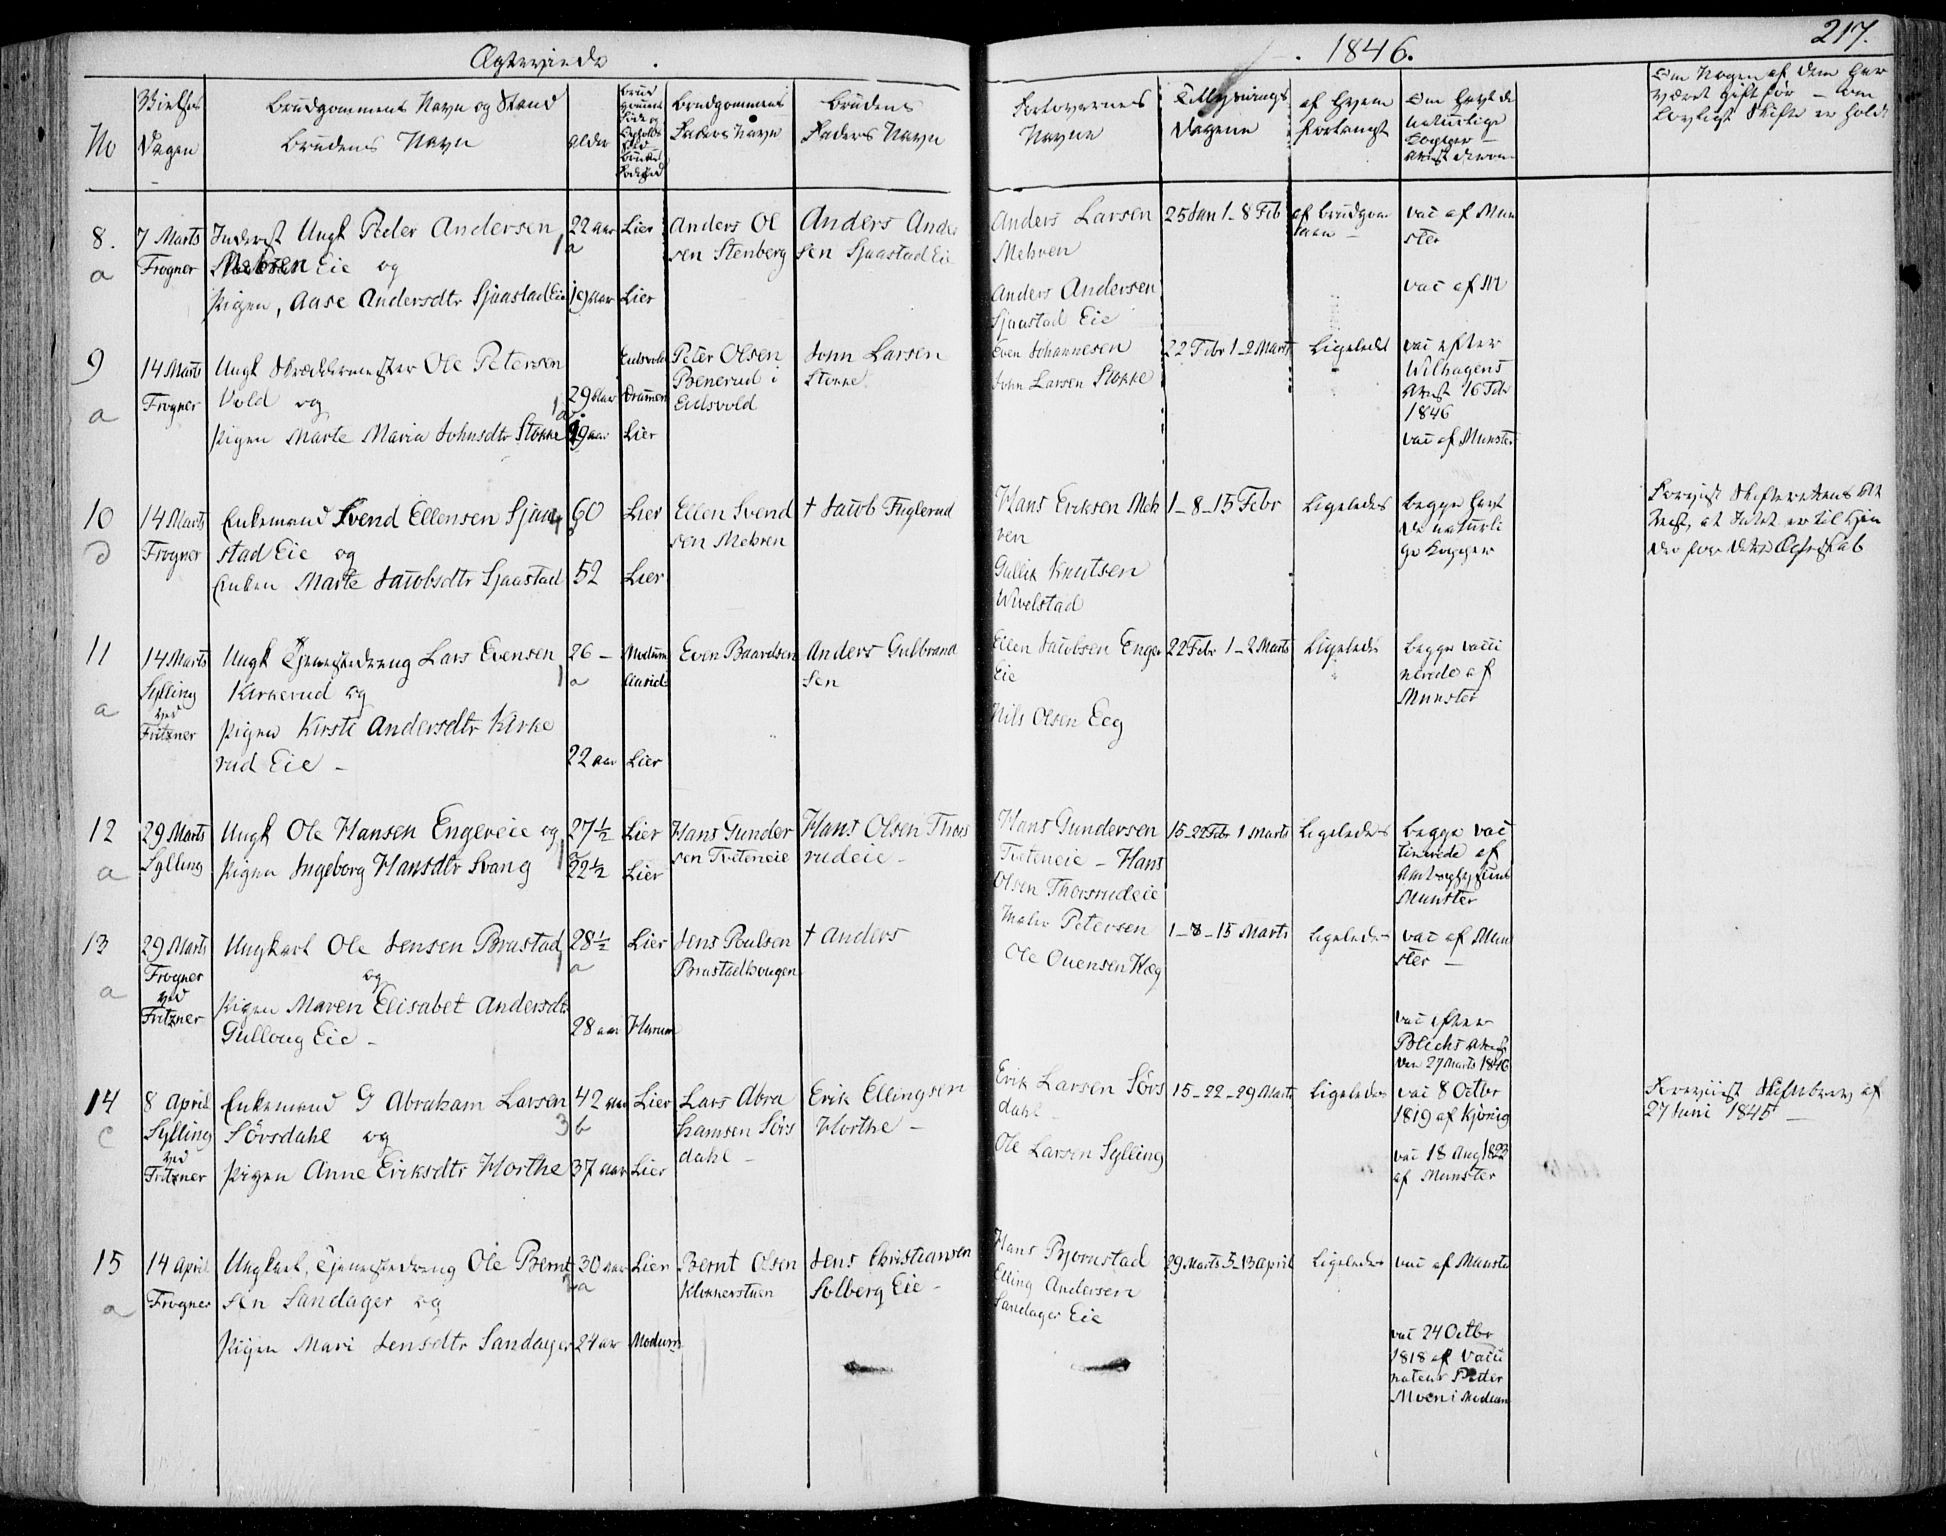 Ægteviede . 1846. 217.
No
Vielses Dagen
Brudgommens Navn og Stand
Brudens Navn
Alder
Brudgommens Faders Navn
Brudens Faders Navn
Forlovernes Navne
Tillysnings Dagene
af Hvem forlangt
Om havt de naturlige Kopper
Om Nogen af dem har
været gift før – om
lovligt Skifte er holdt
8.
a
7 Marts
Frogner
Inderst Ungk Peder Andersen
Mehren Eie og
Pigen, Aase Andersdtr Sjaastad Eie
22 aar
a
19 aar
Lier
Lier
Anders Ol
sen Stenberg
Anders Ander
sen Sjaastad Eie
Anders Larsen
Mehren
Anders Andersen
Sjaastad Eie
25 Jan 1 – 8 Feb
af Brudgom
men –
vac af Mun
ster
vac af M
9
a
14 Marts
Frogner
Ungk Skræddermester Ole Petersen
Vold og
Pigen Marte Maria Johnsdtr Stokke
29 aar
19 aar
Eidsvold
Drammen
Lier
Peter Olsen
Benerud i
Eidsvold
John Larsen
Stokke
Even Johannesen
John Larsen Stokke
22 Febr 1 – 2 Marts
Ligeledes
vac efter
Wilhagens
Attest 16 Febr
1846
vac af Munster
10
d
14 Marts
Frogner
Enkemand Svend Ellensen Sjaa
stad Eie og
Enken Marte Jacobsdtr Sjaastad
60
52
Lier
Lier
Ellen Svend
sen Mehren
† Jacob Fuglerud
Hans Eriksen Meh
ren
Gullik Knutsen
Wivelstad
1 – 8 – 15 Febr
Ligeledes
Begge havt
de naturli
ge Kopper
Forevist Skifterettens At
test, at Intet er til Hin
der for dette Ægteskab
11
a
14 Marts
Sylling
ved
Fritzner
Ungk Tjenestedreng Lars Evensen
Kirkerud og
Pigen Kirsti Andersdtr Kirke
rud Eie –
26 –
a
22 aar
Modum
Lier
Even Baardsen
Anders Gulbrand
sen
Ellen Jacobsen Enger
Eie
Nils Olsen Eeg
22 Febr 1 – 2 Marts
Ligeledes
Begge vacci
nerede af
Munster
12
a
29 Marts
Sylling
Ungk Ole Hansen Engereie og
Pigen Ingeborg Hansdtr Svang
27 ½
22 ½
Lier
Lier
Hans Gunder
sen Tveteneie
Hans Olsen Thors
rudeie –
Hans Gundersen
Tveteneie – Hans
Olsen Thorsrudeie
15 – 22 Febr 1 Marts
Ligeledes
Begge vac
cinerede af
Munster
13
a
29 Marts
Frogner
ved
Fritzner
Ungkarl Ole Jensen Brastad
og
Pigen Maren Elisabet Andersdtr
Gulloug Eie –
28 ½
a
28 aar
Lier
Hurum
Jens Poulsen
Brastadhougen
† Anders
Maler Petersen
Ole Ouensen Høeg
1 – 8 – 15 Marts
Ligeledes
vac af Mun
ster –
vac efter
Blichs Attest
den 27 Marts 1846
14
c
8 April
Sylling
ved
Fritzner
Enkemand G Abraham Larsen
Sörsdahl og
Pigen Anne Eriksdtr Horthe
42 aar
b
37 aar
Lier
Lier
Lars Abra
hamsen Sörs
dahl –
Erik Ellingsen
Horthe –
Erik Larsen Sörs
dahl –
Ole Larsen Sylling
15 – 22 – 29 Marts
Ligeledes
vac 8 Octbr
1819 af Kjönig
vac 18 Aug 1823
af Munster
Forevist Skiftebrev af
27 Juni 1845 –
15
a
14 April
Frogner
Ungkarl, Tjenestedreng Ole Bernt
sen Sandager og
Pigen Mari Jensdtr Sandager
30 aar
a
24 aar
Lier
Modum
Bernt Olsen
Klokkerstuen
Jens Christiansen
Solberg Eie –
Hans Bjørnstad
Elling Andersen
Sandager Eie
29 Marts 5 – 13 April
Ligeledes
vac af Munster
vac 24 Octbr
1818 af Vacci
nateur Peder
Moen i Modum